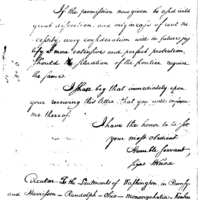 If the permission now given be used with
great discretion, and only in cases of real ne
cessity, every consideration will in future jus
tify a more extensive and perfect protection,
should the situation of the frontier require
the same.
I shall beg that immediately upon
your receiving this letter that you will inform
me thereof.
I have the honor to be
your most obedient
Humble servant,
Knox
Circular To the Lieutenants of Washington in Penn
and Harrison Randolph Ohio Monongahalia